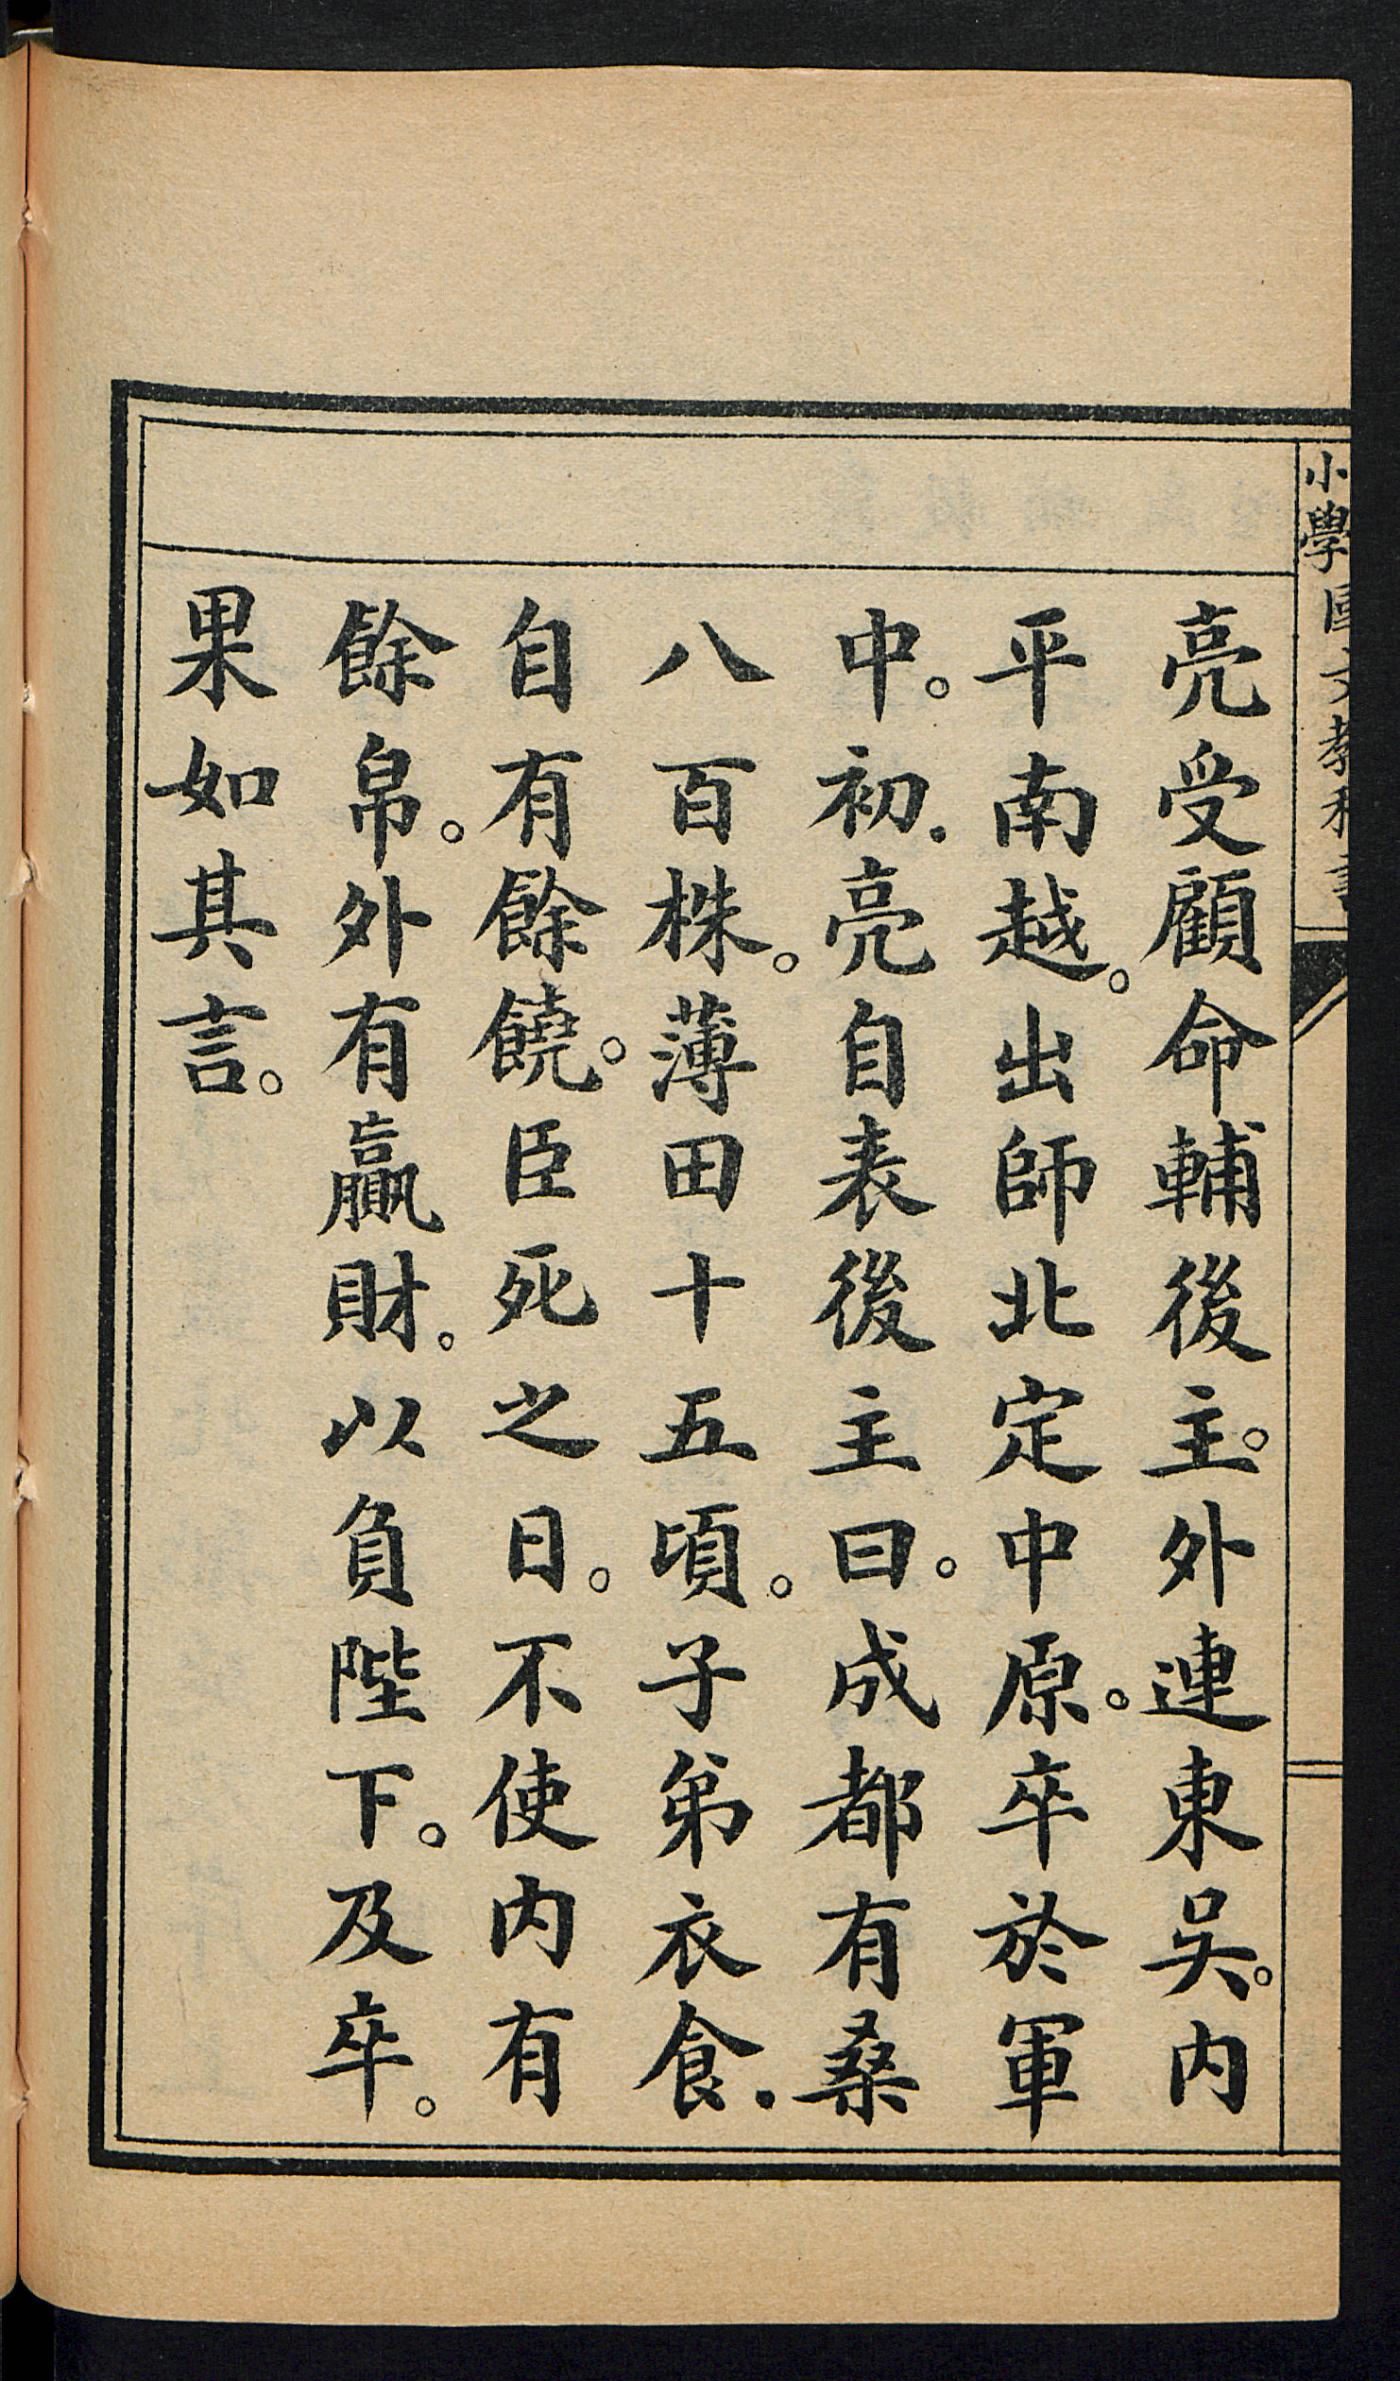 小學國文教科書
亮受顧命輔後主。外連東吳。內
平南越。出師北定中原。卒於軍
中。初.亮自表後主曰。成都有桑
八百株。薄田十五頃。子弟衣食.
自有餘饒。臣死之日。不使內有
餘帛。外有贏財。以負陛下。及卒。
果如其言。